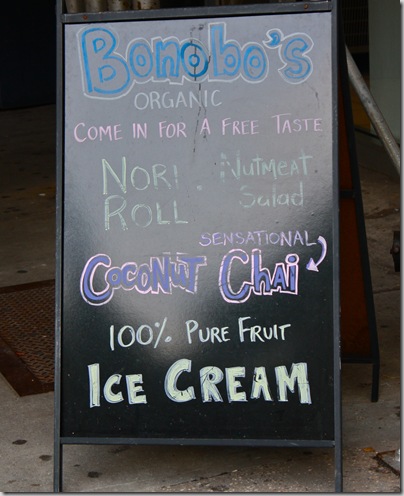 Bonobo's
ORGANIC
COME IN FOR A FREE TASTE
NORI ROLL
Nutmeat Salad
SENSATIONAL
COCONUT CHAI
100% PURE FRUIT
ICE CREAM